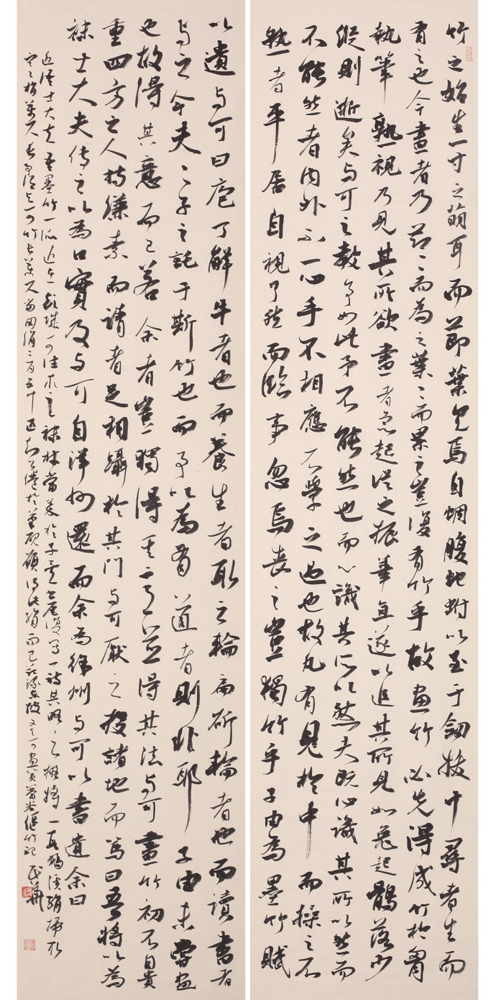 竹之始生一寸之萌耳而節葉具焉自蜩腹蛇蚹以至于劍拔十尋者生而
有之也今畫者乃節節而為之葉葉而累之豈復有竹乎故畫竹必先得成竹於胸
執筆熟視乃見其所欲畫者急起從之振筆直遂以追其所見如兔起鶻落少
縱則逝矣與可之教予如此予不能然也而心識其所以然夫既心識其所以然而
不能然者內外不一心手不相應不學之過也故凡有見於中而操之不
熟者平居自視了然而臨事忽焉喪之豈獨竹乎子由為墨竹賦
以遺與可曰庖丁解牛者也而養生者取之輪扁斫輪者也而讀書者
與之今夫夫子之託于斯竹也而予以為有道者則非耶子由未嘗畫
也故得其意而已若余者豈獨得其意並得其法與可畫竹初不自貴
重四方之人持縑素而請者足相躡於其門與可厭之投諸地而罵曰吾將以為
襪士大夫傳之以為口實及與可自洋州還而余為徐州與可以書遺余曰
近語士大夫吾墨竹一派近在彭城可往求之襪材當萃於子矣書尾復寫一詩其略曰擬將一段鵝溪絹掃取
寒梢萬尺長予謂與可竹長萬尺當用絹二百五十匹知公倦於筆硯願得此絹而已錄東坡文與可畫篔簹谷偃竹記